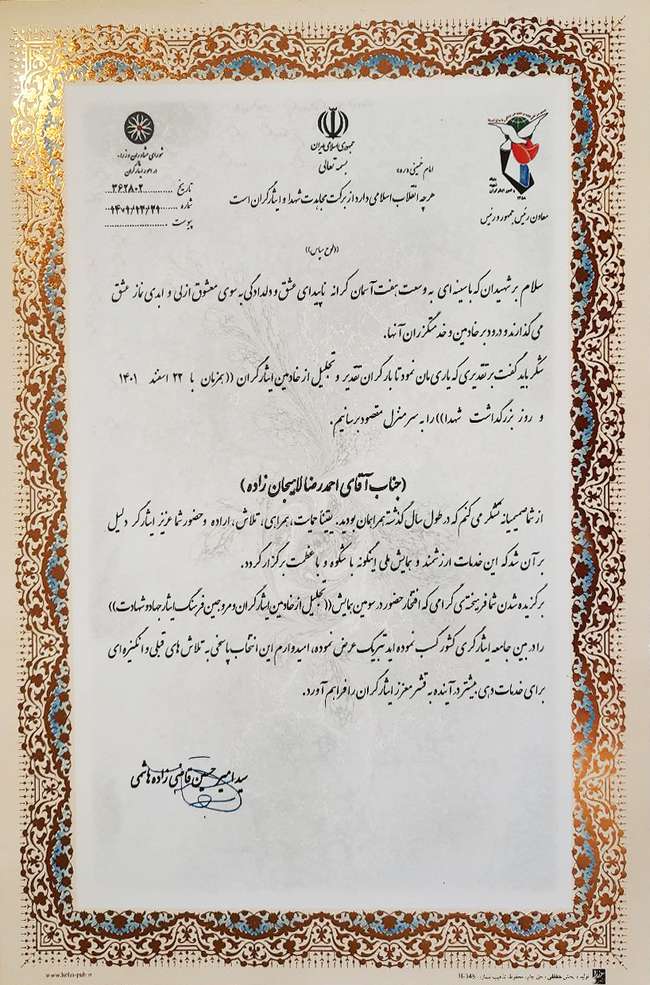 جمهوری اسلامی ایران
بسمه تعالی
شورای مشاوران وزراء
در امور ایثارگران
تاریخ ۳۶۲۸۰۲
شماره ۱۴۰۱/۱۲/۲۹
پیوست
معاون رئیس جمهور و رئیس
امام خمینی (ره):
هرچه انقلاب اسلامی دارد از برکت مجاهدت شهدا و ایثارگران است
((لوح سپاس))
سلام بر شهیدان که با سینه ای به وسعت هفت آسمان کرانه ناپیدای عشق و دلدادگی به سوی معشوق ازلی و ابدی نماز عشق
می گذارند و درود بر خادمین و خدمتگزران آنها.
شکر باید گفت بر تقدیری که یاری مان نمود تا بار گران تقدیر و تجلیل از خادمین ایثارگران ((همزمان با ۲۲ اسفند ۱۴۰۱
و روز بزرگداشت شهدا)) را به سر منزل مقصود برسانیم.
(جناب آقای احمدرضا لاهیجان زاده)
از شما صمیمانه تشکر می کنم که در طول سال گذشته همراهمان بودید. یقیناً حمایت، همراهی، تلاش، اراده و حضور شما عزیز ایثارگر دلیل
بر آن شد که این خدمات ارزشمند و همایش ملی اینگونه با شکوه و با عظمت برگزار گردد.
برگزیده شدن شما فرهیخته ی گرامی که افتخار حضور در سومین همایش ((تجلیل از خادمین ایثارگران و مروجین فرهنگ ایثار جهاد و شهادت))
را در بین جامعه ایثارگری کشور کسب نموده اید تبریک عرض نموده، امیدوارم این انتخاب پاسخی به تلاش های قبلی و انگیزه ای
برای خدمات دهی بیشتر در آینده به قشر معزز ایثارگران را فراهم آورد.
سید امیر حسین قاضی زاده هاشمی